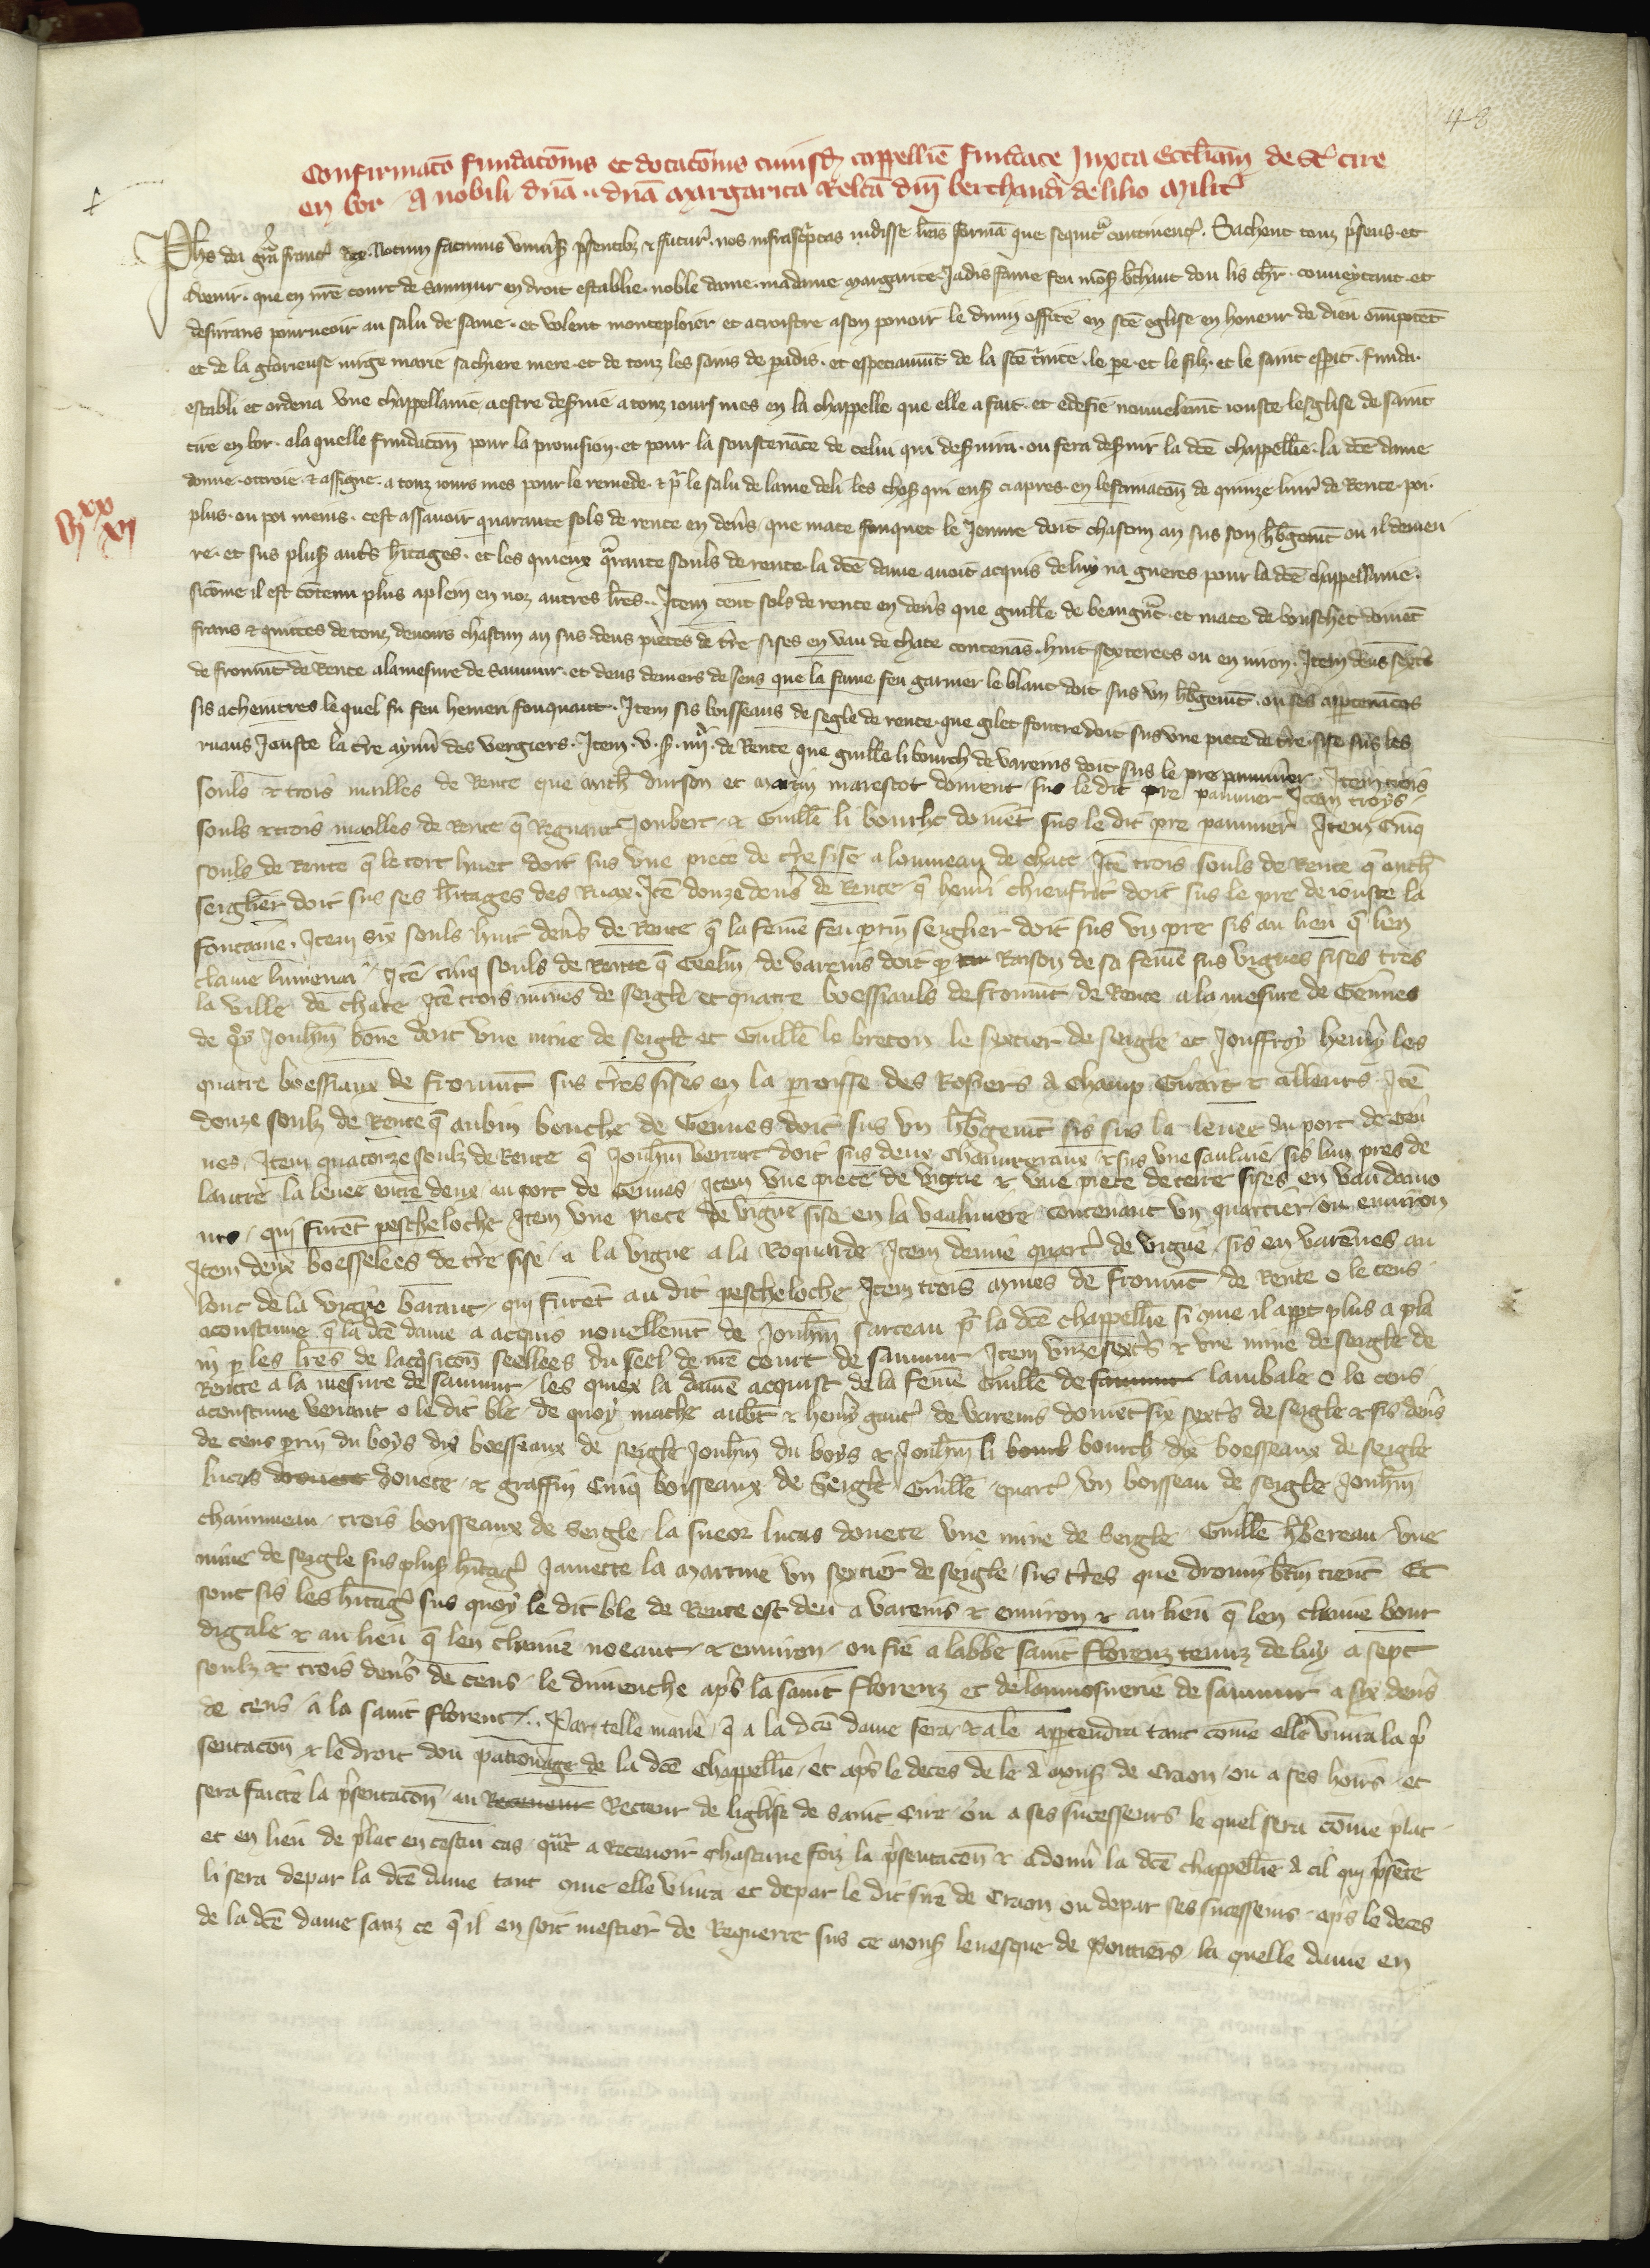 48
Confirmatō fundatōnis et dotatōnis cuiusdā cappellīe fundate Juxta Eccliam de Sto cire
en bor A nobili dnā dnā Margarita Relcā dnī berthaudi de lilio Militꝭ
Phs dei grā francꝭ Rex. Notum facimus univꝭsꝭ pn̄tibꝫ & futurꝭ. nos infrascptas vidisse lrās formā que sequitꝛ continentꝭ. Sachent touz pn̄sens et
avenir. que en nr̄e court de Saumur en droit establie. noble dame. madame Margarite Jadis fame feu mōsꝭ bthaut dou lis chlr̄. convoytant. et
desirans pourveoir au salu de same. et volent monteploier et acroistre a son pouoir le divin office en scē eglise en honeur de dieu omipotēt
et de la glorieuse virge marie sa chiere mere et de touz les sains de padis. et especiaumēt de la scē trinite. le pe. et le filz. et le saint esprit. funda.
establi et ordena une chappellanie a estre deservie a touz iours mes en la chappelle que elle a fait. et edefie nouvelemēt iouste leglise de saint
cire en bor. a la quelle fundacōn pour la provision. et pour la soustenāce de celui qui deservira. ou fera deservir la dcē chappellie. la dcē dame
donne. ottroie. & assigne. a touz iours mes pour le remede. & pꝛ le salu de lame de li les chosꝭ qui ensꝭ ci apres en lestimacōn de quinze livrꝭ de Rente. poi.
VIxx XI
plus. ou poi meins. cest assavoir quarante sols de rente en denꝭs que mace fouquet le Jeune doit chascun an sus son hꝭbgemēt ou il demeu
re. et sus plusꝭ autꝭs hꝭitages. et les quieux qrante souls de rente la dcē dame avoit acquis de luy na gueres pour la dcē chappellanie.
sicōme il est cōtenu plus aplein en noz autres lrēs. Item cent sols de rente en denꝭs que guille de beaugnꝭt et mace de bouschet doivēt
frans & quittes de touz devoirs chascun an sus deus pieces de tꝭre sises en vau de chace contenās. huit sexterees ou en viron. Item deus sextꝭs
de fromēt de Rente a la mesure de Saumur. et deus deniers de sens que la fame feu garnier le blanc doit sus un hꝭbgemēt. ou ses appartenāces
sis a chenitres le quel fu feu hemeri fouquaut. Item sis boisseaus de segle de rente. que gilet foutre doit sus une piece de tꝭre. sise sus les
ruaus Jouste la tꝭre aymꝭi des vergiers. Item. v. sꝭ. iiijꝭ. de Rente que guille li bourch de varenis doit sus le pre paumier. Item trois
souls & trois mailles de Rente que mich̄ durson et Martin marescot doivent sus le dit pre paumier Item troys
souls & trois mailles de Rente q̄ Regnaut Joubert & Guille li bourch doivēt sus le dit pre paumier Item Cinq
souls de Rente q̄ le tort huet doit sus une piece de tꝭre sise a lonmeau de chace Itē trois souls de Rente q̄ mich̄
seiglier doit sus ses hꝭitages des Ruax. Itē douze denꝭs de Rente q̄ hemꝭi chienfrit doit sus le pre de iouste la
fontaine. Item six souls huit denꝭs de Rente q̄ la feme feu prin seiglier doit sus un pre sis au lieu q̄ len
clame lumenai Itē cinq souls de Rente q̄ de varenis doit pꝛ Raison de sa feme sus vignes sises tres
la ville de chace Itē trois mines de seigle et quatre boessiauls de fromēt de Rente a la mesure de Gennes
de qꝛy Jouhān bone doit une mine de seigle et Guille le breton le sextier de seigle et Jouffroy hemꝭy les
quatre boessiaux de fromēt sus tꝭres sises en la paroisse des Rosiers a champ Girart & ailleurs Itē
douze soulz de Rente q̄ aubin bouche de Gennes doit sus un hꝭbgemēt sis sus la levee du port de Gen
nes. Item quatorze soulz de Rente q̄ Jouhān doit sus deux & sus une saulaie sis lun pres de
lautre la levee entre deux au port de Gennes. Item une piece de vigne & une piece de terre sises en vau
qui furēt pescheloche Item une piece de vigne sise en la contenant un quartier ou environ
Item deux boesselees de tꝭre sise a la vigne a la Roquarde Item demie quartꝭ de vigne sis en varennes au
lonc de la vigne qui furēt au dit pescheloche Item trois mines de fromēt de Rente o le cens
acoustume q̄ la dcē dame a acquis novellemēt de Jouhān sarceau pꝛ la dcē chappellie si cōme il appt plus a pla
in p les lrēs de lacqsicōn seellees du seel de nrē court de saumur. Item unze sextꝭs & une mine de seigle de
Rente a la mesure de saumur les quiex la dame acquist de la feme Guille de lambale o le cens
acoustume venant o le dit ble de quoy mathe & hemꝭy de varenis doivēt six sextꝭs de seigle & sis denꝭs
de cens prin du boys dix boesseaux de seigle Jouhān du boys & Jouhān li bourch dix boesseaux de seigle
lucas dovete & graffin Cinq boisseaux de Seigle Guille quartꝭ un boisseau de seigle Jouhān
trois boisseaux de Seigle la sueor lucas dovete une mine de Seigle Guille une
mine de seigle sus plusꝭ hꝭitagꝭ Jamette la Martine un sextier de seigle sus tꝭres que tienēt Et
sont sis les hꝭitagꝭ sus quoy le dit ble de Rente est deu a varenis & environ & au lieu q̄ len clamme bour
digale & au lieu q̄ len clamme noeant & environ ou fie a labbe saint Florenz tenuz de luy a sept
soulz & trois denꝭs de cens le dimenche apꝭs la saint Florenz et de laumosnerie de saumur a six denꝭs
de cens a la saint Florent. Par telle maniē q̄ a la dcē dame sera & a le appartendra tant cōme elle vivra la pꝭ
sentacōn & le droit dou patronage de la dcē chappellie et apꝭs le deces de le a monsꝭ de Craon ou a ses hoirs et
sera faicte la pꝭsentacōn au Recteur de liglise de Saint Cire ou a ses successeurs le quel sera cōme pꝭlat
et en lieu de pꝭlat en cestui cas qꝛt a Recevoir chascune foiz la pꝭsentacōn & a donꝭ la dcē chappellie a cil qui pꝭsēte
li sera de par la dcē dame tant cōme elle vivra et de par le dit sire de Craon ou de par ses successeurs apꝭs le deces
de la dcē dame sanz ce q̄ il en soit mestier de Requerre sus ce monsꝭ levesque de Poitiers la quelle dame en